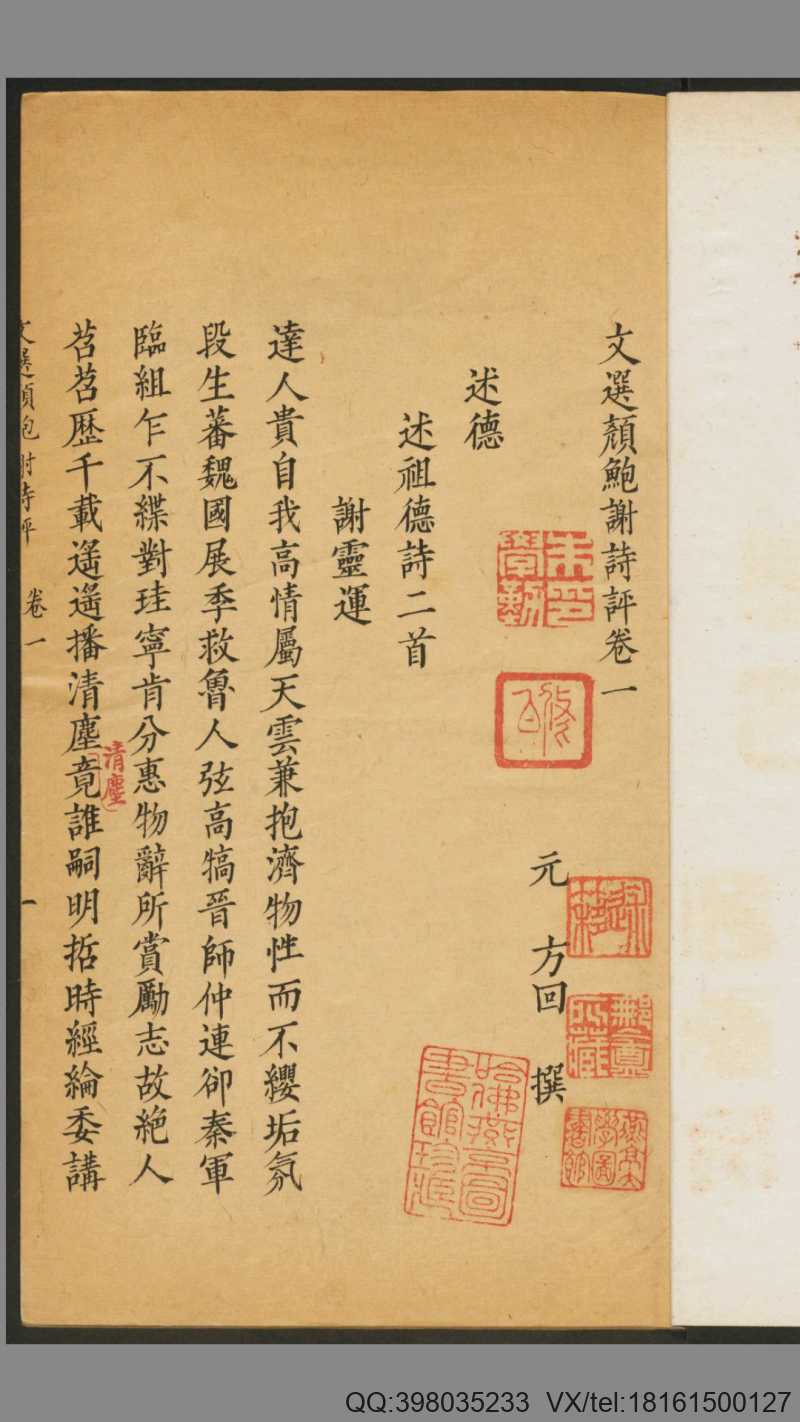 文選顏鮑謝詩評卷一
元 方回 撰
述德
述祖德詩二首
謝靈運
達人貴自我高情屬天雲兼抱濟物性而不纓垢氛
段生蕃魏國展季救魯人弦高犒晉師仲連卻秦軍
臨組乍不緤對珪寧肯分惠物辭所賞勵志故絶人
清塵
苕苕歷千載遙遙播清塵竟誰嗣明哲時經綸委講
文選顏鮑謝詩評 卷一 一
哈佛燕京圖書館珍藏
QQ:398035233 VX/tel:18161500127